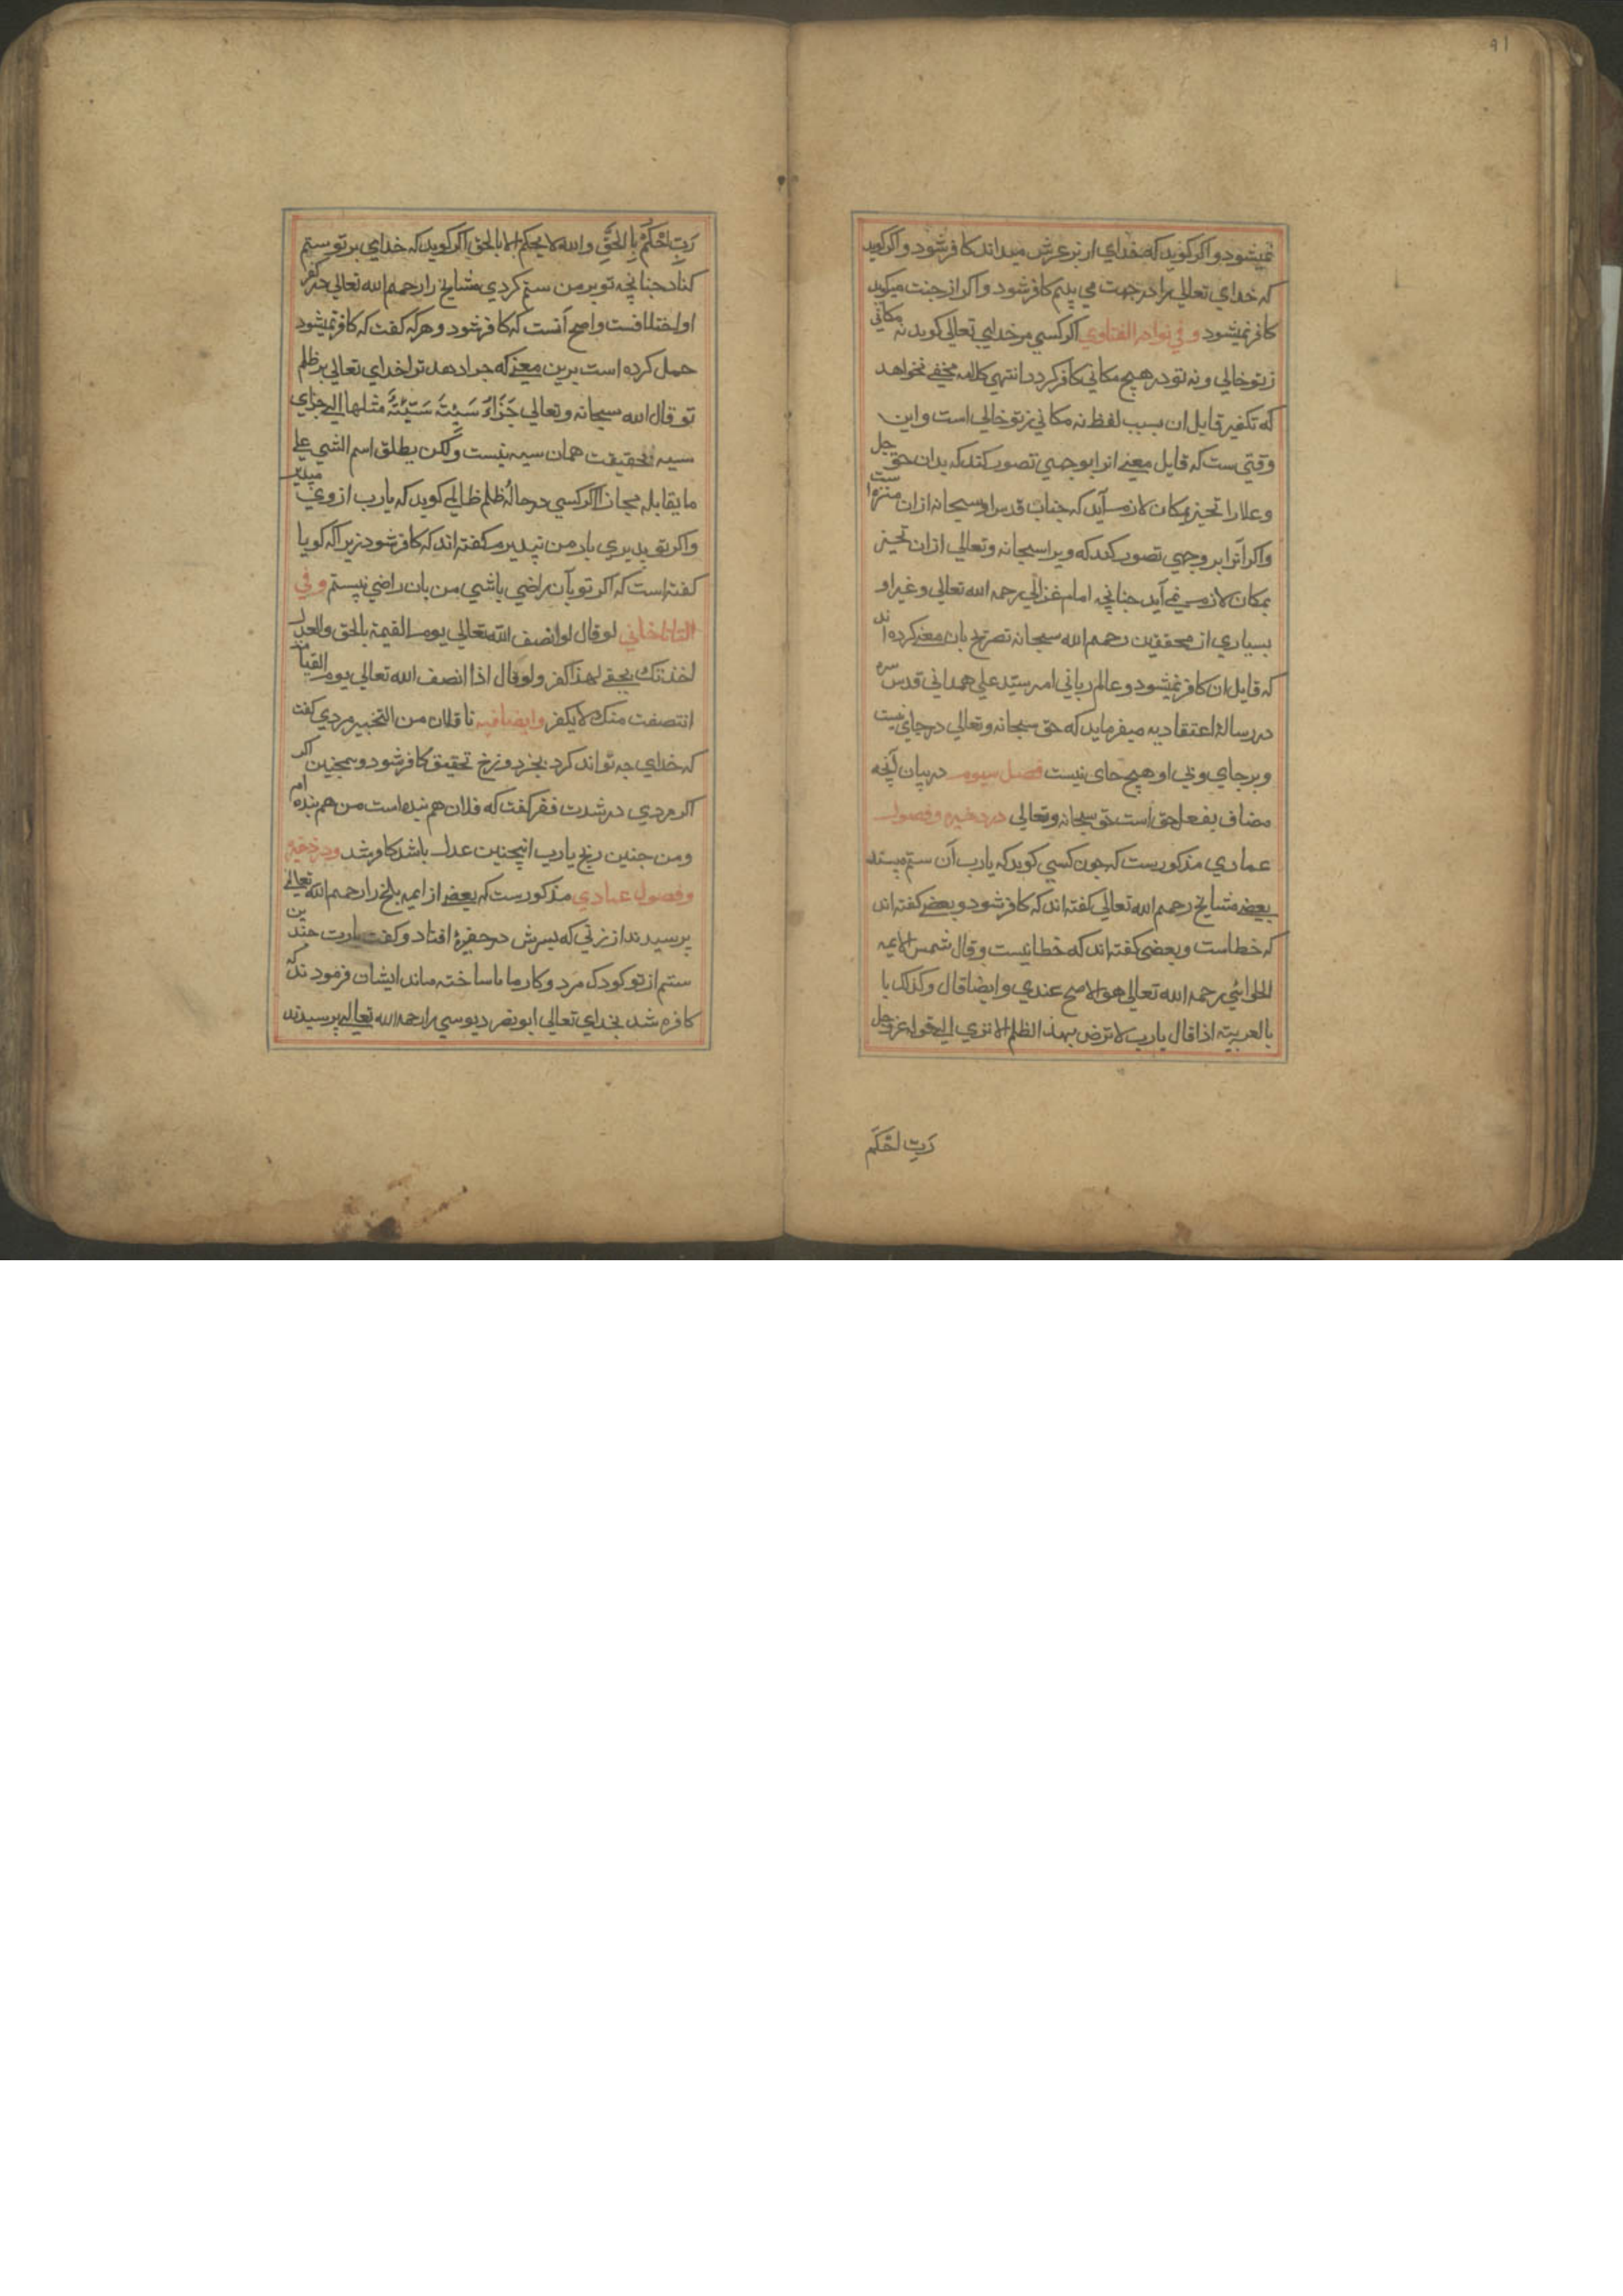 ٩١
نمیشود و اکر کوید که خدای از بر عرش میداند کافر شود و اکر کوید
که خدای تعالی را در جهت می بینم کافر شود و اکر از جنت میکوید
کافر نمیشود و فی نوادر الفتاوی اکر کسی مر خدایی تعالی کوید نه مکانی
ز تو خالی و نه تو در هیچ مکانی کافر کردد انتهی کلامه مخفی نخواهد
که تکفیر قایل ان بسبب لفظ نه مکانی ز تو خالی است و این
وقتی ست که قایل معنی انرا بوجهی تصور کند که بدان حق جل
و علا را تحیز بمکان لازم آید که جناب قدس او سبحانه ازان منزه است
و اکر آنرا بر وجهی تصور کند که ویرا سبحانه و تعالی ازان تحیز
بمکان لازم نمی آید جنانچه امام غزالی رحمه الله تعالی و غیر او
بسیاری از محققین رحمهم الله سبحانه تصریح بان معنی کرده اند
که قایل ان کافر نمیشود و عالم ربانی امیر سید علی همدانی قدس سره
در رسالهٔ اعتقادیه میفرماید که حق سبحانه و تعالی در جای نیست
و بر جای و بی او هیچ جای نیست فصل سیوم در بیان آنچه
مضاف بفعل حق است حق سبحانه و تعالی در ذخیره و فصول
عمادی مذکورست که جون کسی کوید که یارب آن ستم مپسند
بعضی مشایخ رحمهم الله تعالی کفته اند که کافر شود و بعضی کفته اند
که خطاست و بعضی کفته اند که خطا نیست و قال شمس الایمه
الحلوانی رحمه الله تعالی هو الاصح عندی و ایضا قال و کذلک یا
بالعربیته اذا قال یارب لا ترض بهذا الظلم الا تری الی قوله عز و جل
رَبِّ احْکُمْ
رَبِّ احْکُمْ بِالحَقِّ و الله لا یحکم الا بالحق اکر کوید که خدای بر تو ستم
کناد جنانچه تو بر من ستم کردی مشایخ را رحمهم الله تعالی در کفر
او اختلافست و اصح آنست که کافر شود و هر که کفت که کافر نمیشود
حمل کرده است برین معنی که جزا دهد ترا خدای تعالی بر ظلم
تو قال الله سبحانه و تعالی جَزَاءُ سَیِّئَةٍ سَیِّئَةٌ مثلها الی جزای
سیه بحقیقت همان سیه نیست و لکن یطلق اسم الشی علی
ما یقابله مجازا اکر کسی در حالهٔ ظلم ظالمی کوید که یارب از وی مپذیر
و اکر تو بپذیری بار من نپذیرم کفته اند که کافر شود زیرا که کویا
کفته است که اکر تو بآن راضی باشی من بان راضی نیستم و فی
التاتارخانی لو قال لو انصف الله تعالی یوم القیمة بالحق والعدل
اخذتک بحقی لهذا کفر و لو قال اذا انصف الله تعالی یوم القیامة
انتصفت منک لا یکفر و ایضا فیه ناقلان من التخییر مردی کفت
که خدای جه تواند کرد بخز دوزخ تحقیق کافر شود و همچنین اکر
اکر مردی در شدت فقر کفت که فلان هم بنده است من هم بنده ام
و من جنین رنج یارب انچنین عدل باشد کافر شد و در ذخیره
و فصول عمادی مذکورست که بعضی از ایمه بلخ را رحمهم الله تعالی
پرسیدند از زنی که پسرش در حفرهٔ افتاد و کفت یارب جندین
ستم از تو کودک مرد و کار ما ناساخته ماند ایشان فرمودند که
کافره شد بخدای تعالی ابو نصر دبوسی را رحمه الله تعالی پرسیدند